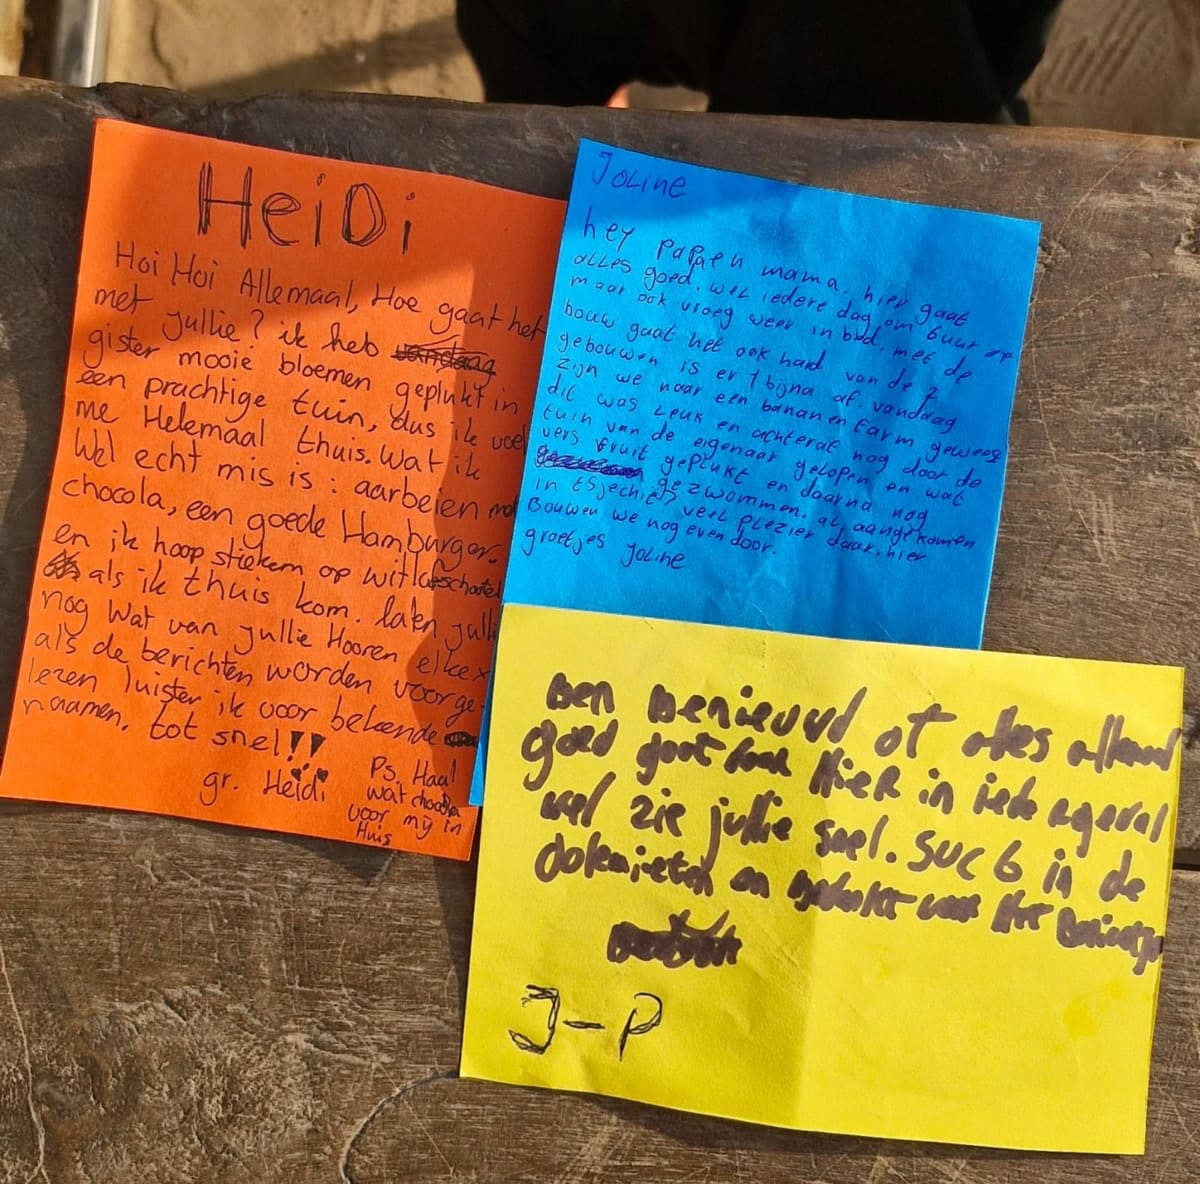 HeiDi
Hoi Hoi Allemaal, Hoe gaat het
met jullie? ik heb vandaag
gister mooie bloemen geplukt in
een prachtige tuin, dus ik voel
me Helemaal thuis. wat ik
Wel echt mis is: aarbeien met
chocola, een goede Hamburger.
en ik hoop stiekem op witlofschotel
als ik thuis kom. laten jullie
nog wat van jullie Hooren elke x
als de berichten worden voorge-
lezen luister ik voor bekende
naamen. tot snel!!
gr. Heidi
Ps. Haal
wat chocola
voor mij in
Huis
Joline
hey papa en mama. hier gaat
alles goed. wel iedere dag om 6 uur op
maar ook vroeg weer in bed. met de
bouw gaat het ook hard van de 2
gebouwen is er 1 bijna af. vandaag
zijn we naar een bananen farm geweest
dit was leuk en achteraf nog door de
tuin van de eigenaar gelopen en wat
vers fruit geplukt en daarna nog
gezwommen. al aangekomen
in tsjechië? veel plezier daar. hier
Bouwen we nog even door.
groetjes Joline
Ben benieuwd of alles allemaal
goed gaat hier in iedergeval
wel zie jullie snel. suc 6 in de
dolomieten en bedankt voor het
J-P